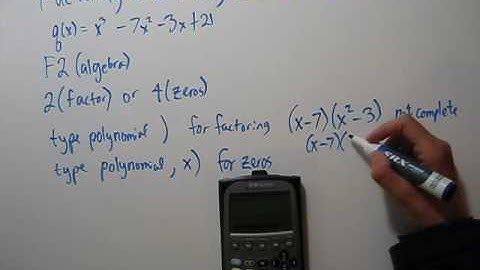 g(x) = x³ - 7x² - 3x + 21
F2 (algebra)
2 (factor) or 4 (zeros)
type polynomial ) for factoring (x-7)(x²-3) not complete
(x-7)(
type polynomial, x) for zeros